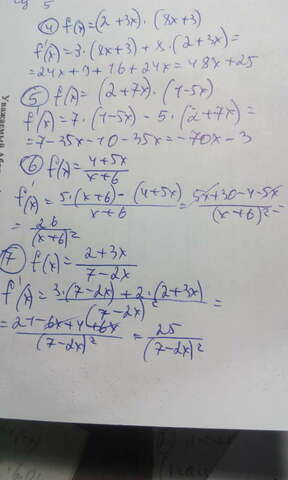 ④ f(x)=(2+3x)·(8x+3)
f'(x)=3·(8x+3)+8·(2+3x)=
=24x+9+16+24x=48x+25
⑤ f(x)=(2+7x)·(1-5x)
f'(x)=7·(1-5x)-5·(2+7x)=
=7-35x-10-35x=-70x-3
⑥ f(x)=(4+5x)/(x+6)
f'(x)=(5·(x+6)-(4+5x))/(x+6)=(5x+30-4-5x)/(x+6)²=
=26/(x+6)²
⑦ f(x)=(2+3x)/(7-2x)
f'(x)=(3·(7-2x)+2·(2+3x))/(7-2x)²=
=(21-6x+4+6x)/(7-2x)²=25/(7-2x)²